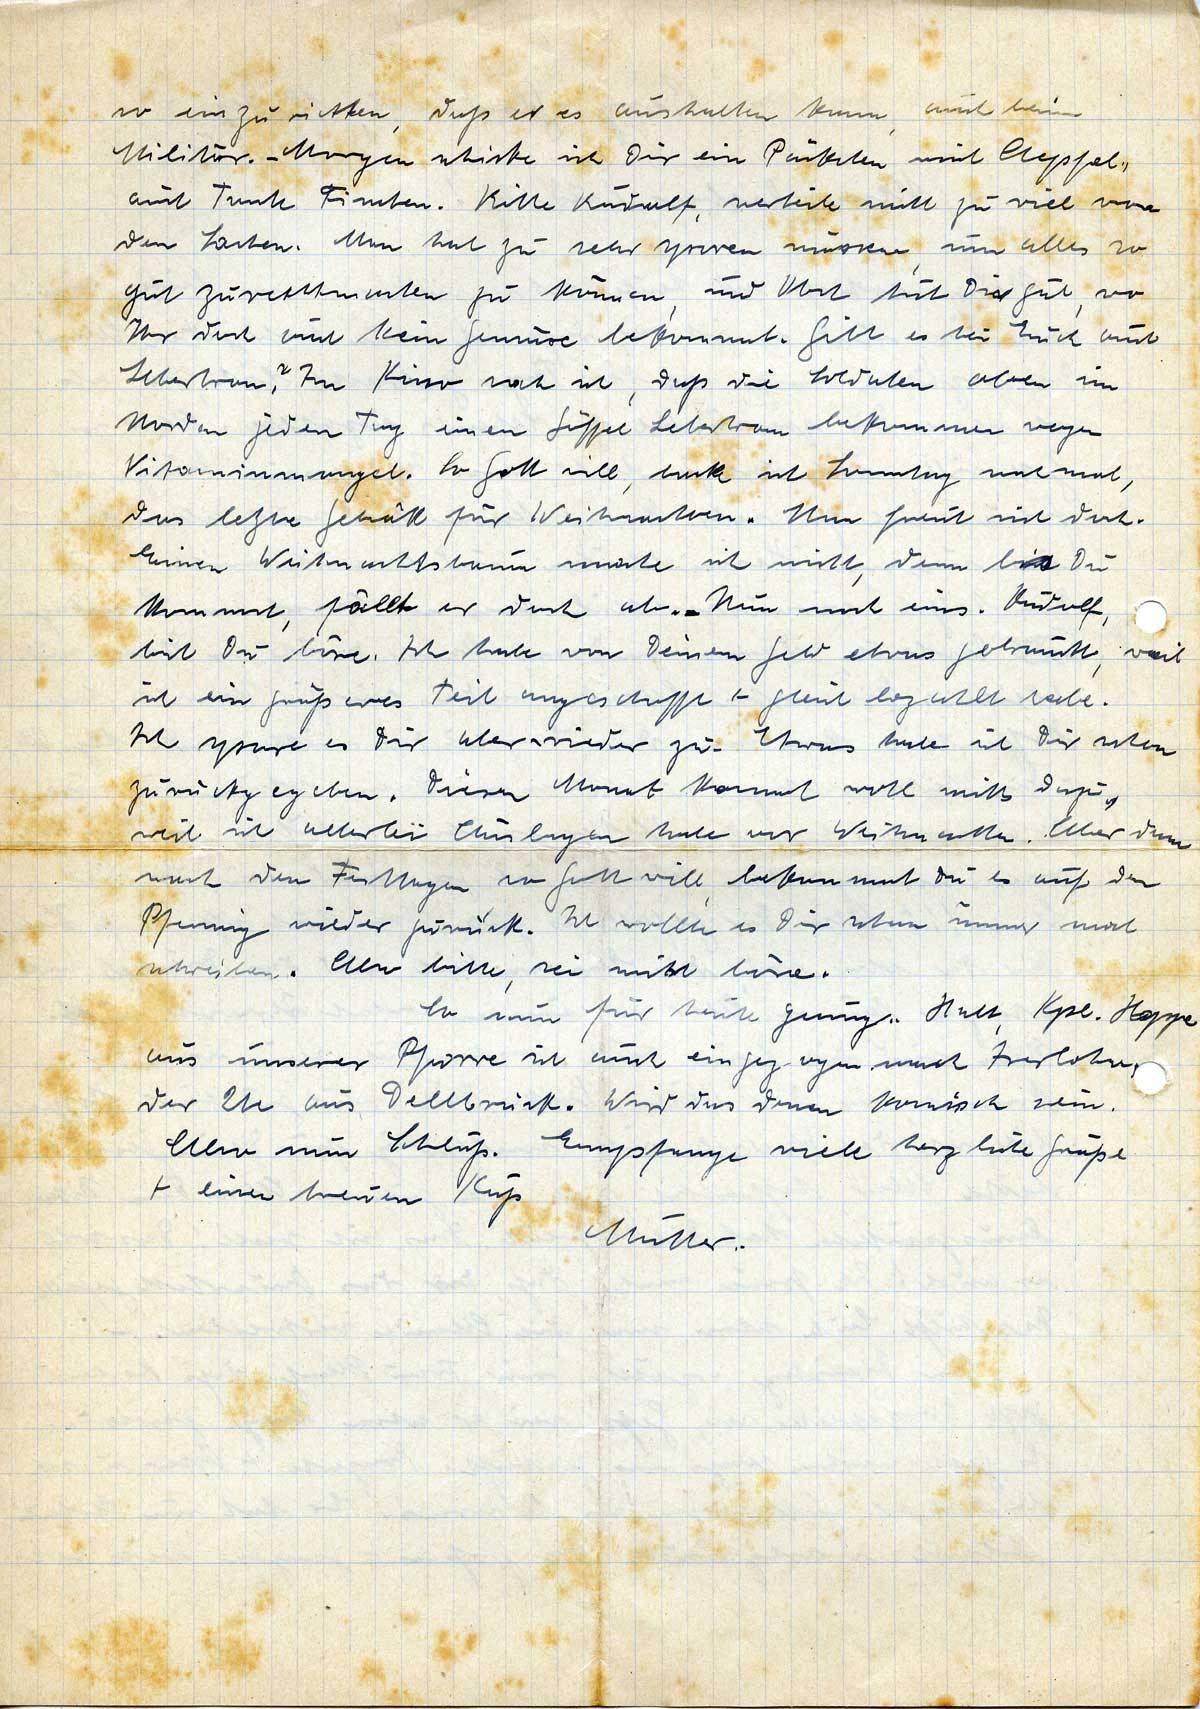 so einzurichten, daß er es aushalten kann, auch beim
Militär. – Morgen schicke ich Dir ein Päckchen mit Aepfel,
auch Tante Finchen. Bitte Rudolf, verteile nicht zu viel von
den Sachen. Man hat zu sehr sparen müssen, um alles so
gut zurechtmachen zu können, und Obst tut Dir gut, wo
Ihr doch auch kein Gemüse bekommt. Gibt es bei Euch auch
Lebertran? Im Kino sah ich, daß die Soldaten oben im
Norden jeden Tag einen Löffel Lebertran bekommen wegen
Vitaminmangel. So Gott will, backe ich Sonntag nochmal,
das letzte Gebäck für Weihnachten. Nun freut sich doch.
Einen Weihnachtsbaum mache ich nicht, denn bis Du
kommst, fällt er doch ab. – Nun noch eins. Rudolf,
bist Du böse. Ich habe von Deinem Geld etwas gebraucht, weil
ich ein größeres Teil angeschafft + gleich bezahlt habe.
Ich spare es Dir aber wieder zu. Etwas habe ich Dir schon
zurückgegeben. Diesen Monat kommt wohl nichts dazu,
weil ich allerlei Auslagen habe vor Weihnachten. Aber dann
nach den Festtagen so Gott will, bekommst Du es auf den
Pfennig wieder zurück. Ich wollte es Dir schon immer mal
schreiben. Also bitte, sei nicht böse.
So nun für heute genug. Halt, Kpl. Hoppe
aus unserer Pfarre ist auch eingezogen nach Iserlohn,
der 2te aus Dellbrück. Wird das denen komisch sein.
Also nun Schluß. Empfange viele herzliche Grüße
+ einen treuen Kuß
Mutter.